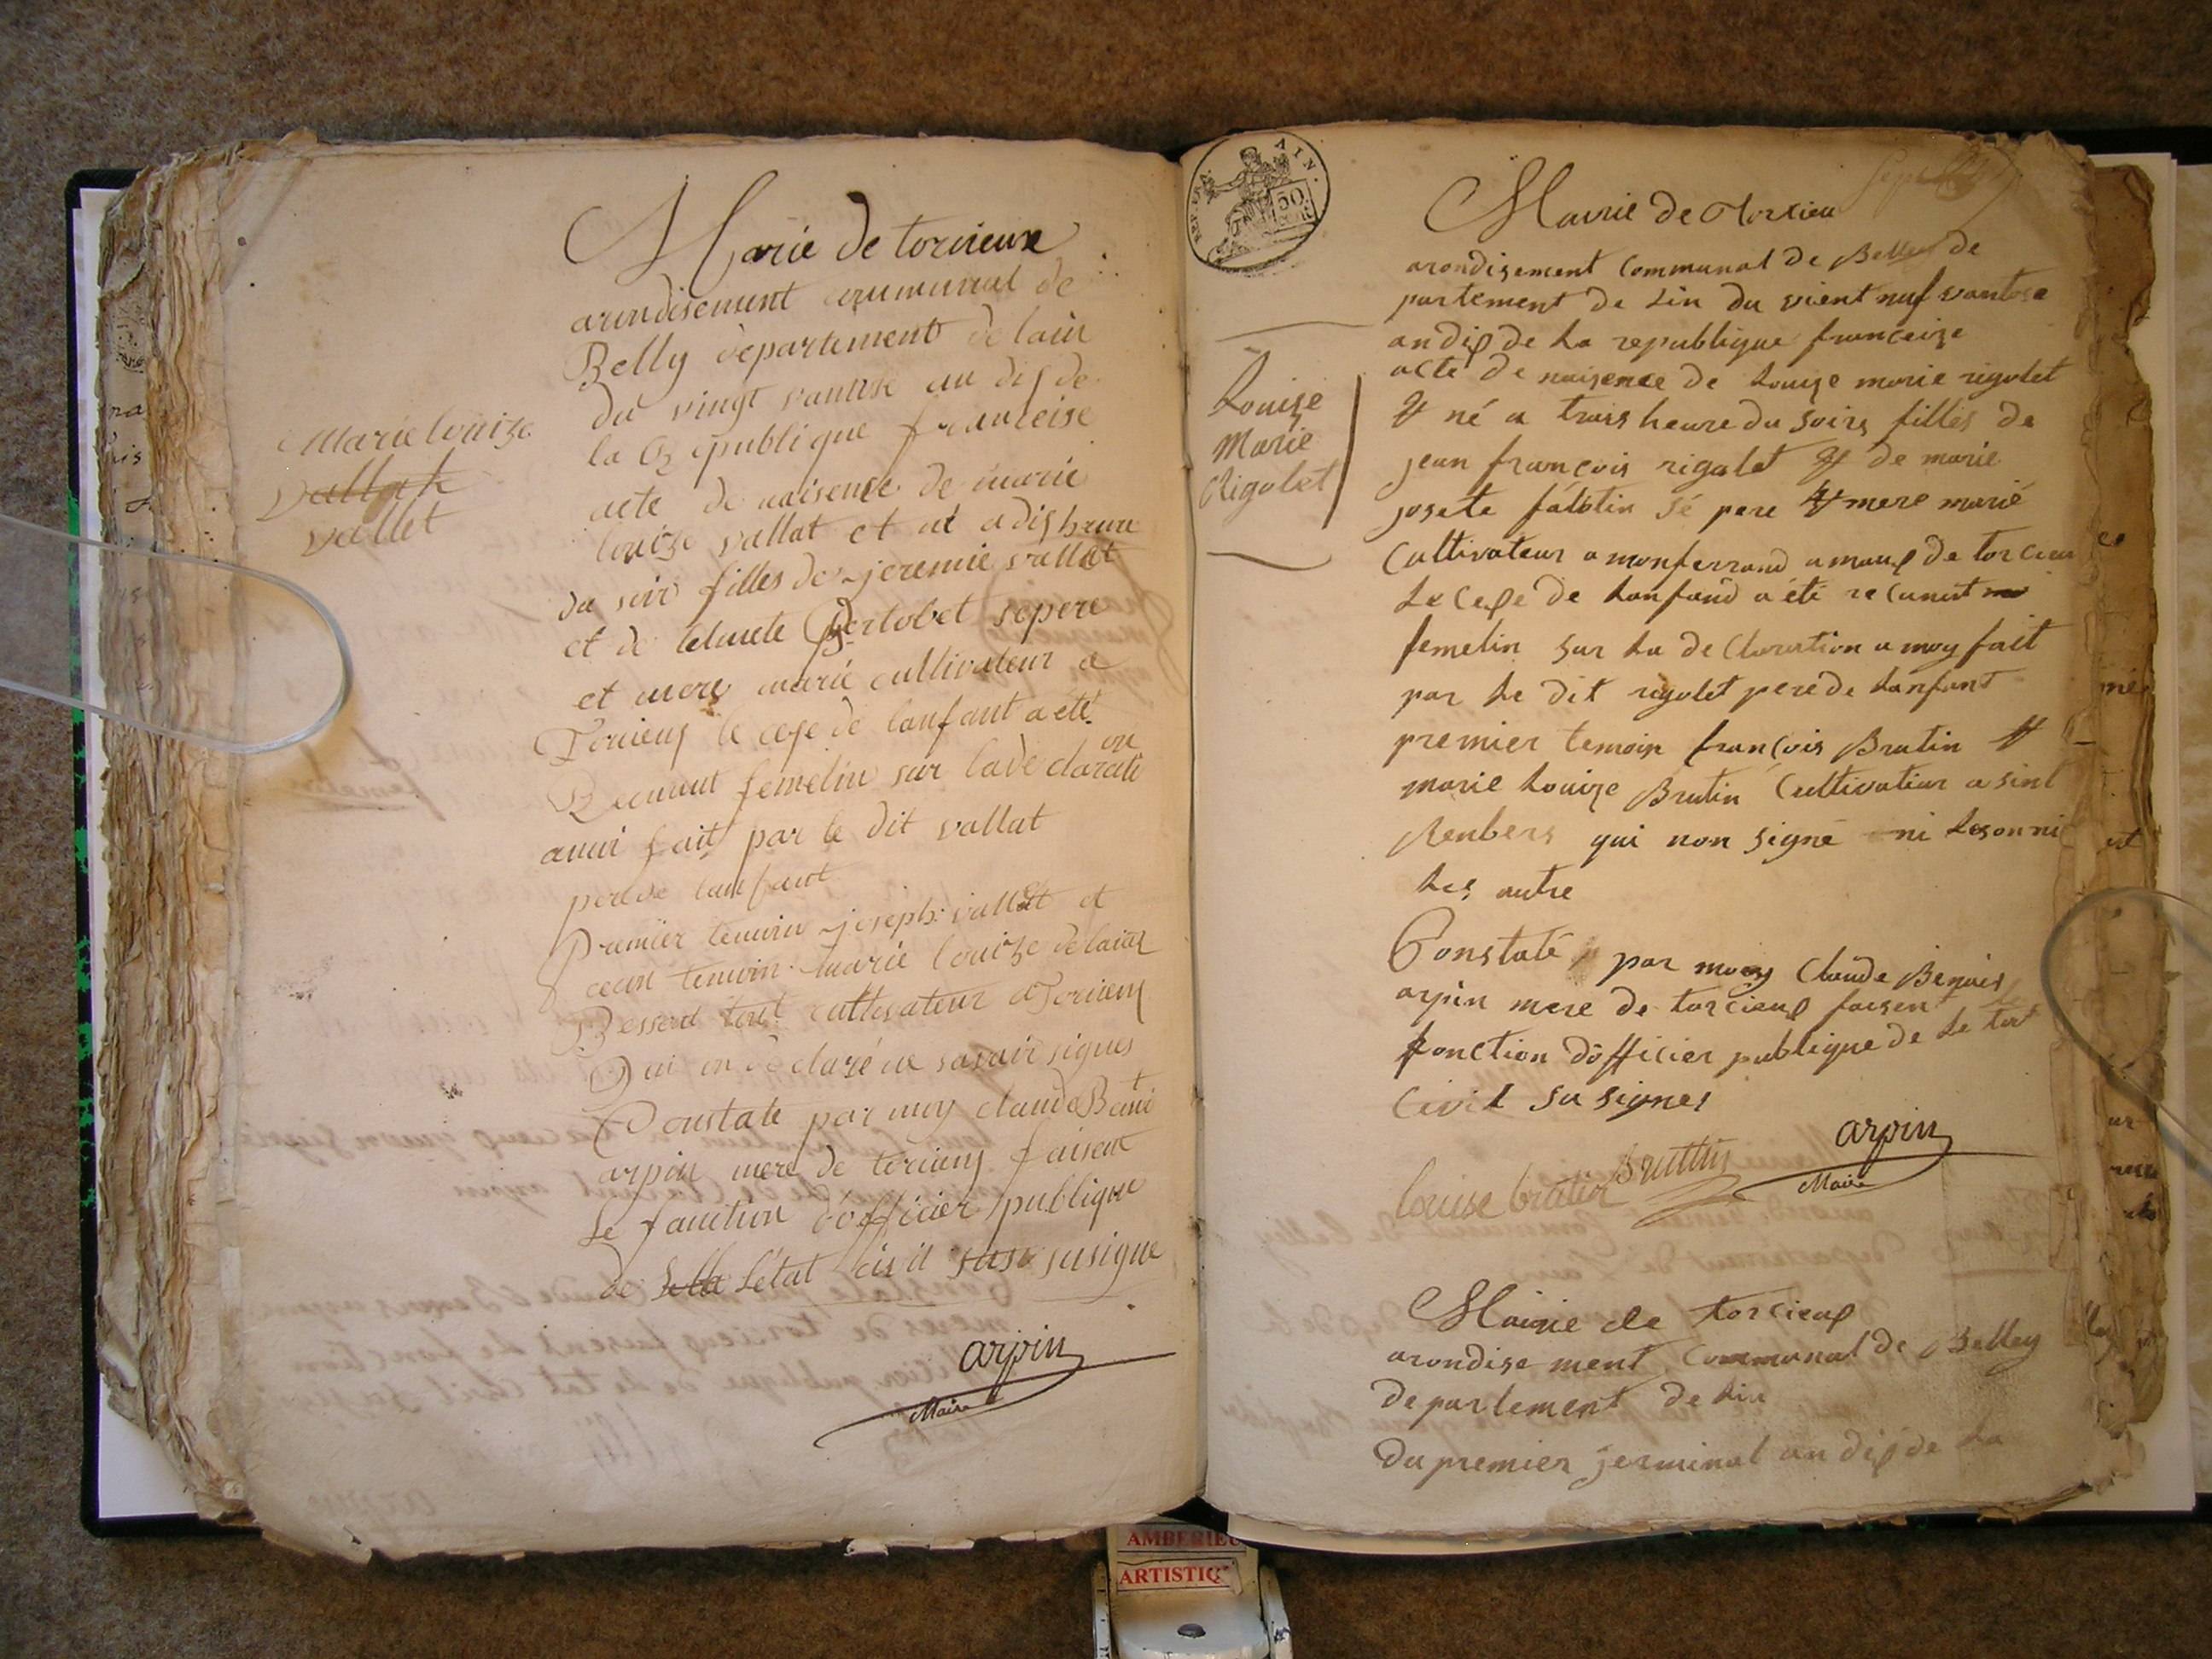 Marie de torcieux
arondisement communal de
Belly département de lain
du vingt vantose an dix de
la République franceise
acte de naisence de marie
louize vallat et né a dix heure
du soir filles de jeremie vallet
et de claude Bertobet se pere
et mere marié cultivateur a
Torcieux le cexe de lanfant a été
Reconut femelin sur la de clarati
on
a moi fait par le dit vallat
pere de lanfant
Premier temoin joseph vallet et
temoin marie louize
tout cultivateur a Torcieux
Qui on déclaré ne savoir signer
Constaté par moy claude Benoi
t
arpin mere de torcieux faisent
le fonction d'officier publique
de l'état civil susigne
arpin
Maire
Marie louize
vallat
vallet
REP. FRA. AIN.
50
Mairie de Torcieu
arondisement Communal de Belley de
partement de Lin du vient nuf vantose
an dix de La republique franceize
acte de naisence de Louize marie rigolet
et né a trois heure du soirs filles de
jean françois rigolet et de marie
josete falotin sé pere et mere marié
Cultivateur a monferrand amaux de torcieu
Le Cexe de Lanfand a été reconut
femelin sur La de Claration a moy fait
par Le dit rigolet pere de Lanfant
premier temoin françois Brutin et
marie Louize Brutin Cultivateur a sint
Renbers qui non signé ni Leson ni
Les autre
Constaté par moy Claude Benois
arpin mere de torcieux faisent le
fonction dofficier publique de Le tat
Civil su signer
arpin
Maire
louise brutin Bruttin
Louize
Marie
Rigolet
Mairie de torcieux
arondise ment Communal de Belley
departement de Lin
Du premier jerminal an dix de La
AMBERIEU
ARTISTIQ